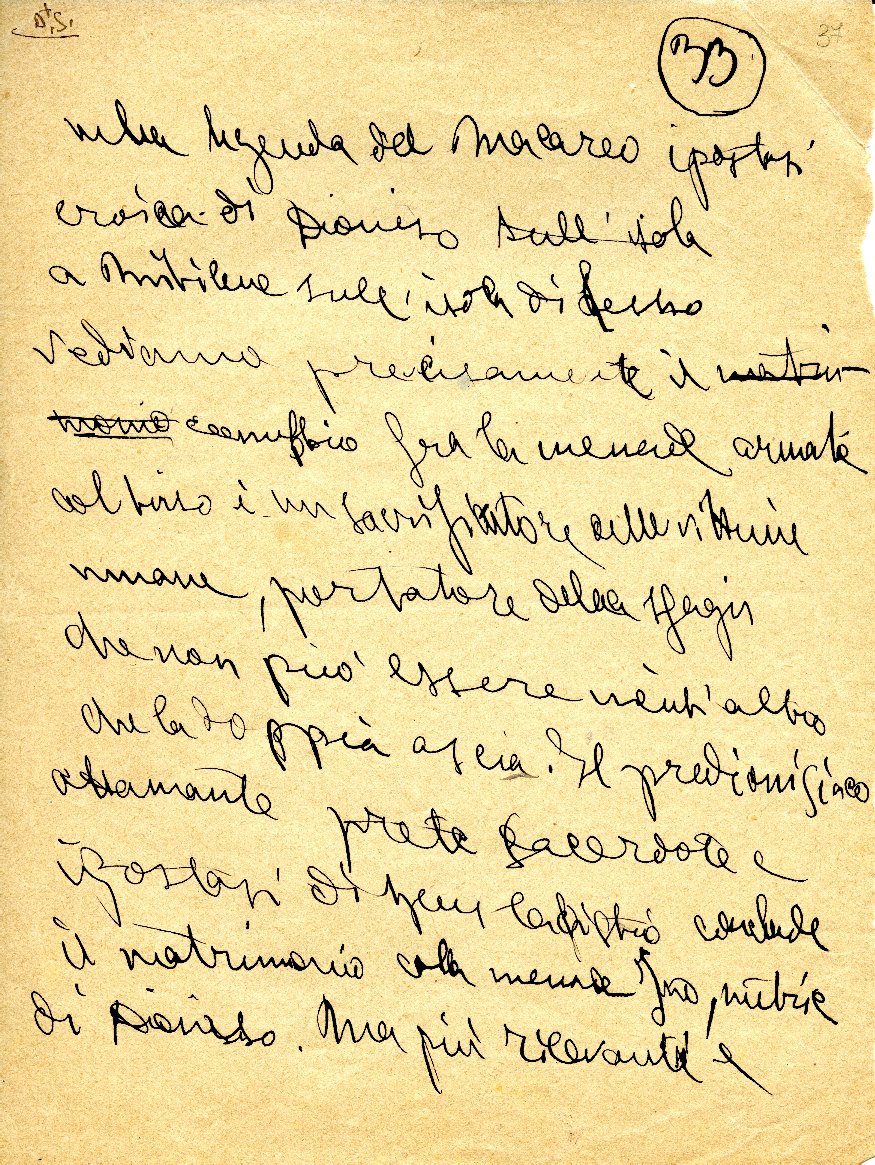 D.S.
33
37
nella legenda del Macareo ipostasi
eroica di Dioniso sull' isola
a Mitilene sull' isola di Lesbo
vediamo precisamente il matri-
monio connubio fra la menade armata
col tirso i un sacrificatore delle vittime
umane, portatore della sfagis
che non può essere nient'altro
che la doppia ascia. Il predionisiaco
Attamante prete sacerdote e
ipostasi di Zeus Lafistio conclude
il matrimonio colla menade Ino, nutrice
di Dioniso. Ma più rilevanti e